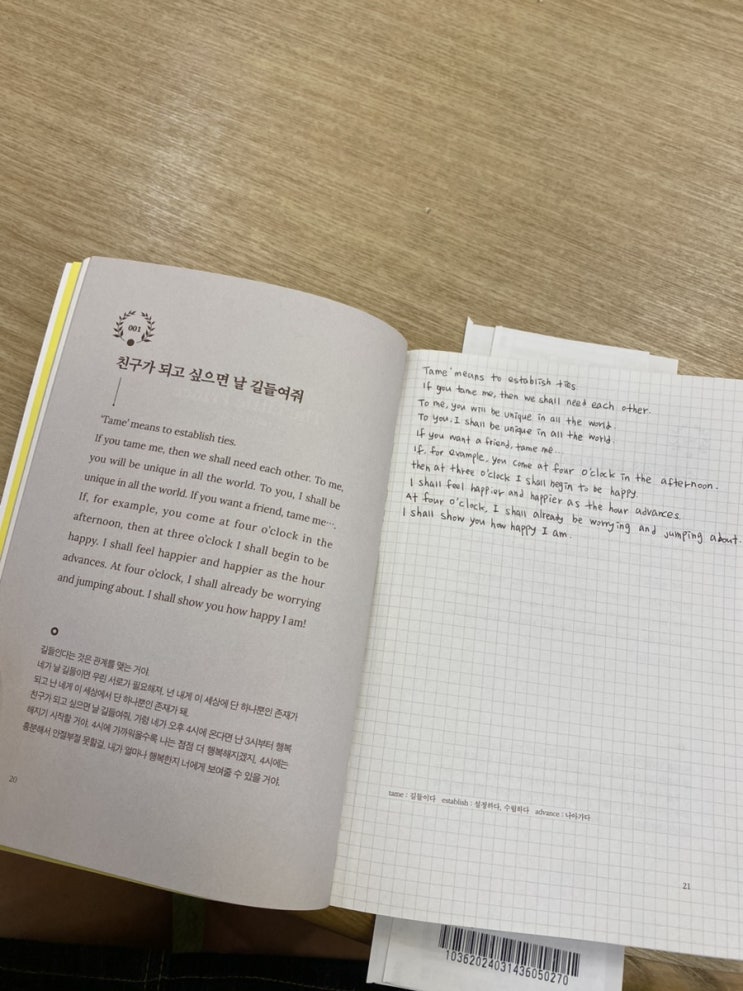 001
친구가 되고 싶으면 날 길들여줘
'Tame' means to establish ties.
If you tame me, then we shall need each other. To me,
you will be unique in all the world. To you, I shall be
unique in all the world. If you want a friend, tame me….
If, for example, you come at four o'clock in the
afternoon, then at three o'clock I shall begin to be
happy. I shall feel happier and happier as the hour
advances. At four o'clock, I shall already be worrying
and jumping about. I shall show you how happy I am!
길들인다는 것은 관계를 맺는 거야.
네가 날 길들이면 우린 서로가 필요해져. 넌 내게 이 세상에 단 하나뿐인 존재가
되고 난 네게 이 세상에서 단 하나뿐인 존재가 돼.
친구가 되고 싶으면 날 길들여줘. 가령 네가 오후 4시에 온다면 난 3시부터 행복
해지기 시작할 거야. 4시에 가까워올수록 나는 점점 더 행복해지겠지. 4시에는
흥분해서 안절부절 못할걸. 내가 얼마나 행복한지 너에게 보여줄 수 있을 거야.
20
Tame' means to establish ties
If you tame me, then we shall need each other.
To me, you will be unique in all the world.
To you, I shall be unique in all the world.
If you want a friend, tame me…
If, for example, you come at four o'clock in the afternoon.
then at three o'clock I shall begin to be happy
I shall feel happier and happier as the hour advances
At four o'clock, I shall already be worrying and jumping about.
I shall show you how happy I am.
tame : 길들이다 establish : 설정하다, 수립하다 advance : 나아가다
21
10362024031436050270